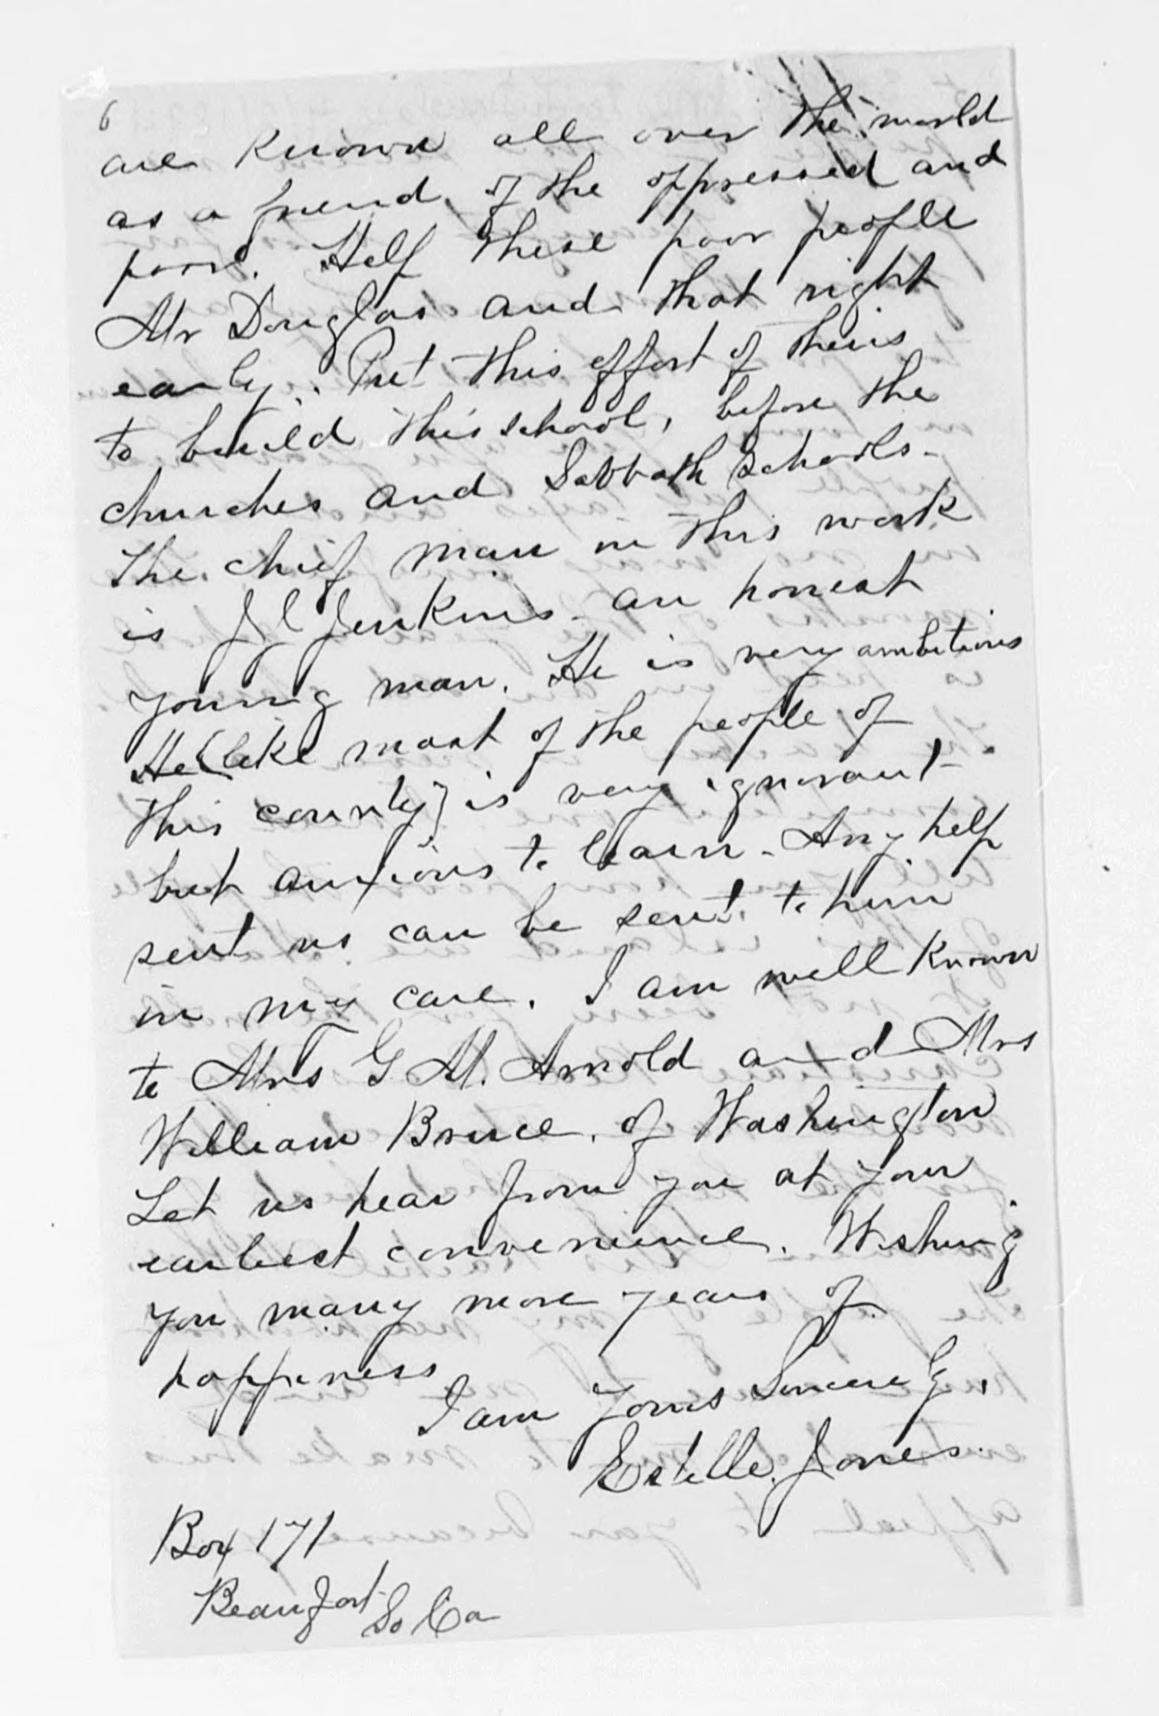 6
are known all over the world
as a friend of the oppressed and
poor. Help these poor people
Mr Douglas and that right
early. Put this effort of theirs
to build this school, before the
churches and Sabbath Schools.
The chief man in this work
is J C Jenkins - an honest
young man. He is very ambitious
He (like most of the people of
this county) is very ignorant
but anxious to learn - Any help
sent us can be sent to him
in my care. I am well known
to Mrs G M. Arnold and Mrs
William Bruce, of Washington
Let us hear from you at your
earliest convenience. Wishing
you many more years of
happiness
I am Yours Sincerely,
Estelle Jones.
Box 171
Beaufort
So Ca